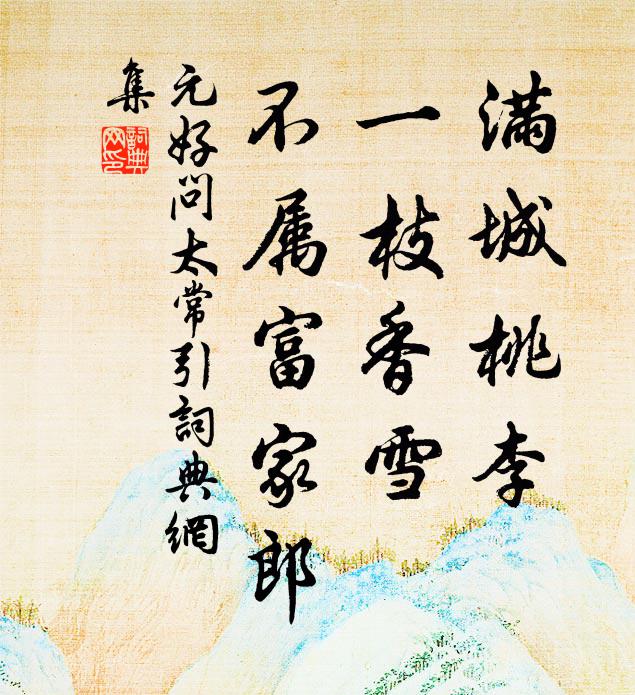 满城桃李
一枝香雪
不属富家郎
元好问太常引詞典網
集
詞典
网印